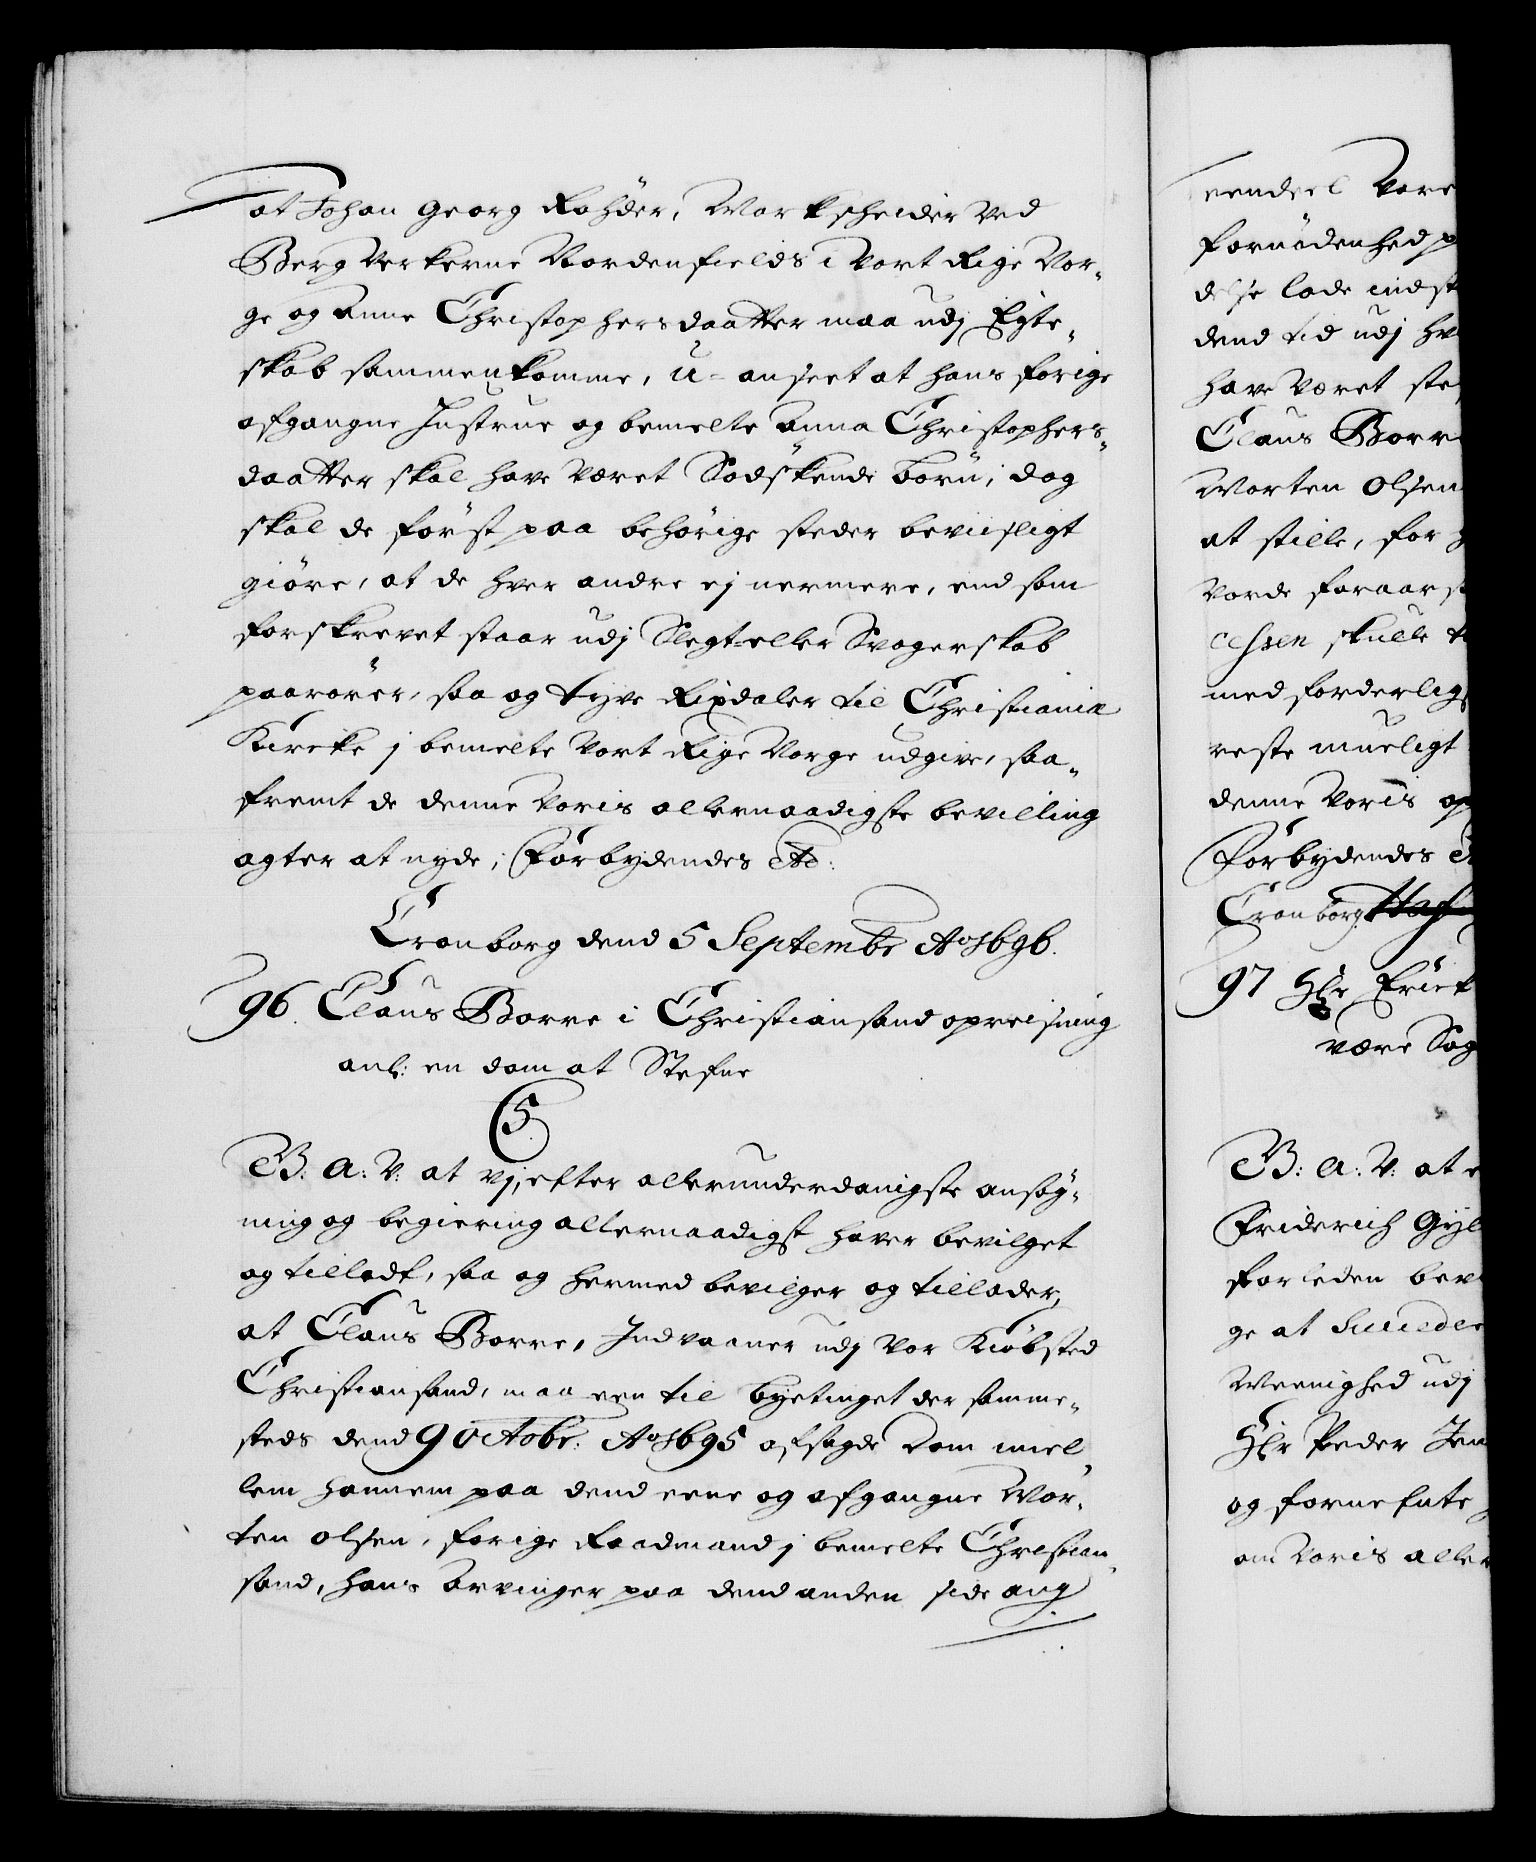 at Johan Georg Rohder, Markscheider ved
Bergverkerne Nordenfields i Vort Rige Nor-
ge og Anne Christophersdaatter maa udj Egte-
skab sammenkomme, u-anseet at hans forige
afgangne Hustrue og bemelte Anna Christophers-
daatter skal have været Sødskende børn; dog
skal de først paa behörige steder beviisligt
giöre, at de hver andre ej nermere, end som
forskrevet staar udj Slegt eller Svogerskab
paarörer, saa og tyve Rixdaler til Christiania
Kircke j bemelte Vort Rige Norge udgive, saa-
fremt de denne Voris allernaadigste bevilling
agter at nyde; Forbydendes etc:
Cronborg dend 5 Septembr Ao 1696.
96. Claus Borre i Christiansand opreisning
anl: en dom at Stefne
5.
B: A: V: at vj, efter allerunderdanigste ansøg-
ning og begiering allernaadigst haver bevilget
og tilladt, saa og hermed bevilger og tillader,
at Claus Borre, Indvaaner udj vor Kiöbsted
Christiansand, maa een til byetinget der samme-
steds dend 9 Octobr: Ao 1695 afsagde Dom imel-
lem hannem paa dend eene og afgangne Mor-
ten Olsen, forige Raadmand j bemelte Christian-
sand, hans Arvinger paa dend anden side ang
eendeel Vare
fornödenhed
delse lade indst
dend tid udj
have været
Claus Borre
Morten Olsen
at stille, for
vorde foraars
cessen skulle
med forderligs
reste mueligt
denne Voris op
Forbydendes
Cronborg
97 Hr Erick
være Sag
B: A: V: at
Friderich Gyl
forleden bev
ge at
Meenighed udj
Hr Peder Jen
og fornefnte
om Voris aller